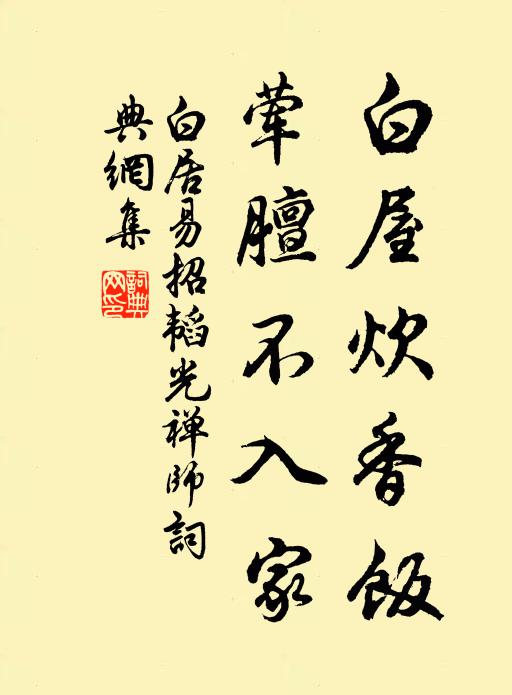 白屋炊香飯
荤膻不入家
白居易招韜光禅師詞
典網集
詞典
网印